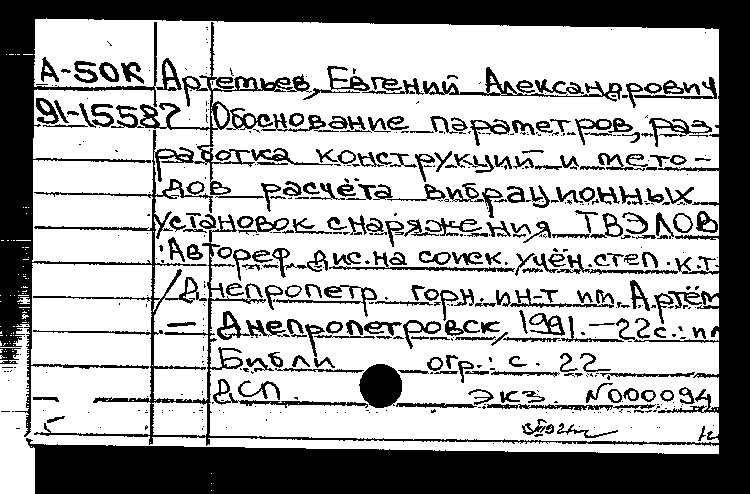 А-50К Артемьев, Евгений Александрович
91-15587 Обоснование параметров, раз-
работка конструкций и мето-
дов расчёта вибрационных
установок снаряжения ТВЭЛОВ
: Автореф дис. на соиск. учён. степ. к.т.
/ Днепропетр. горн. ин-т им. Артём
— Днепропетровск, 1991. — 22 с. : ил
Библи огр.: с. 22
ДСП. экз. №000094